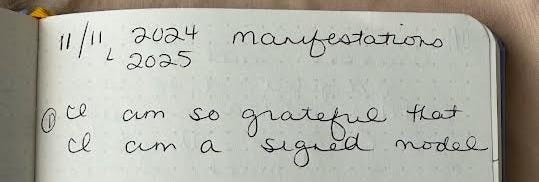 11/11, 2024 manifestations
↳ 2025
① I am so grateful that
I am a signed model